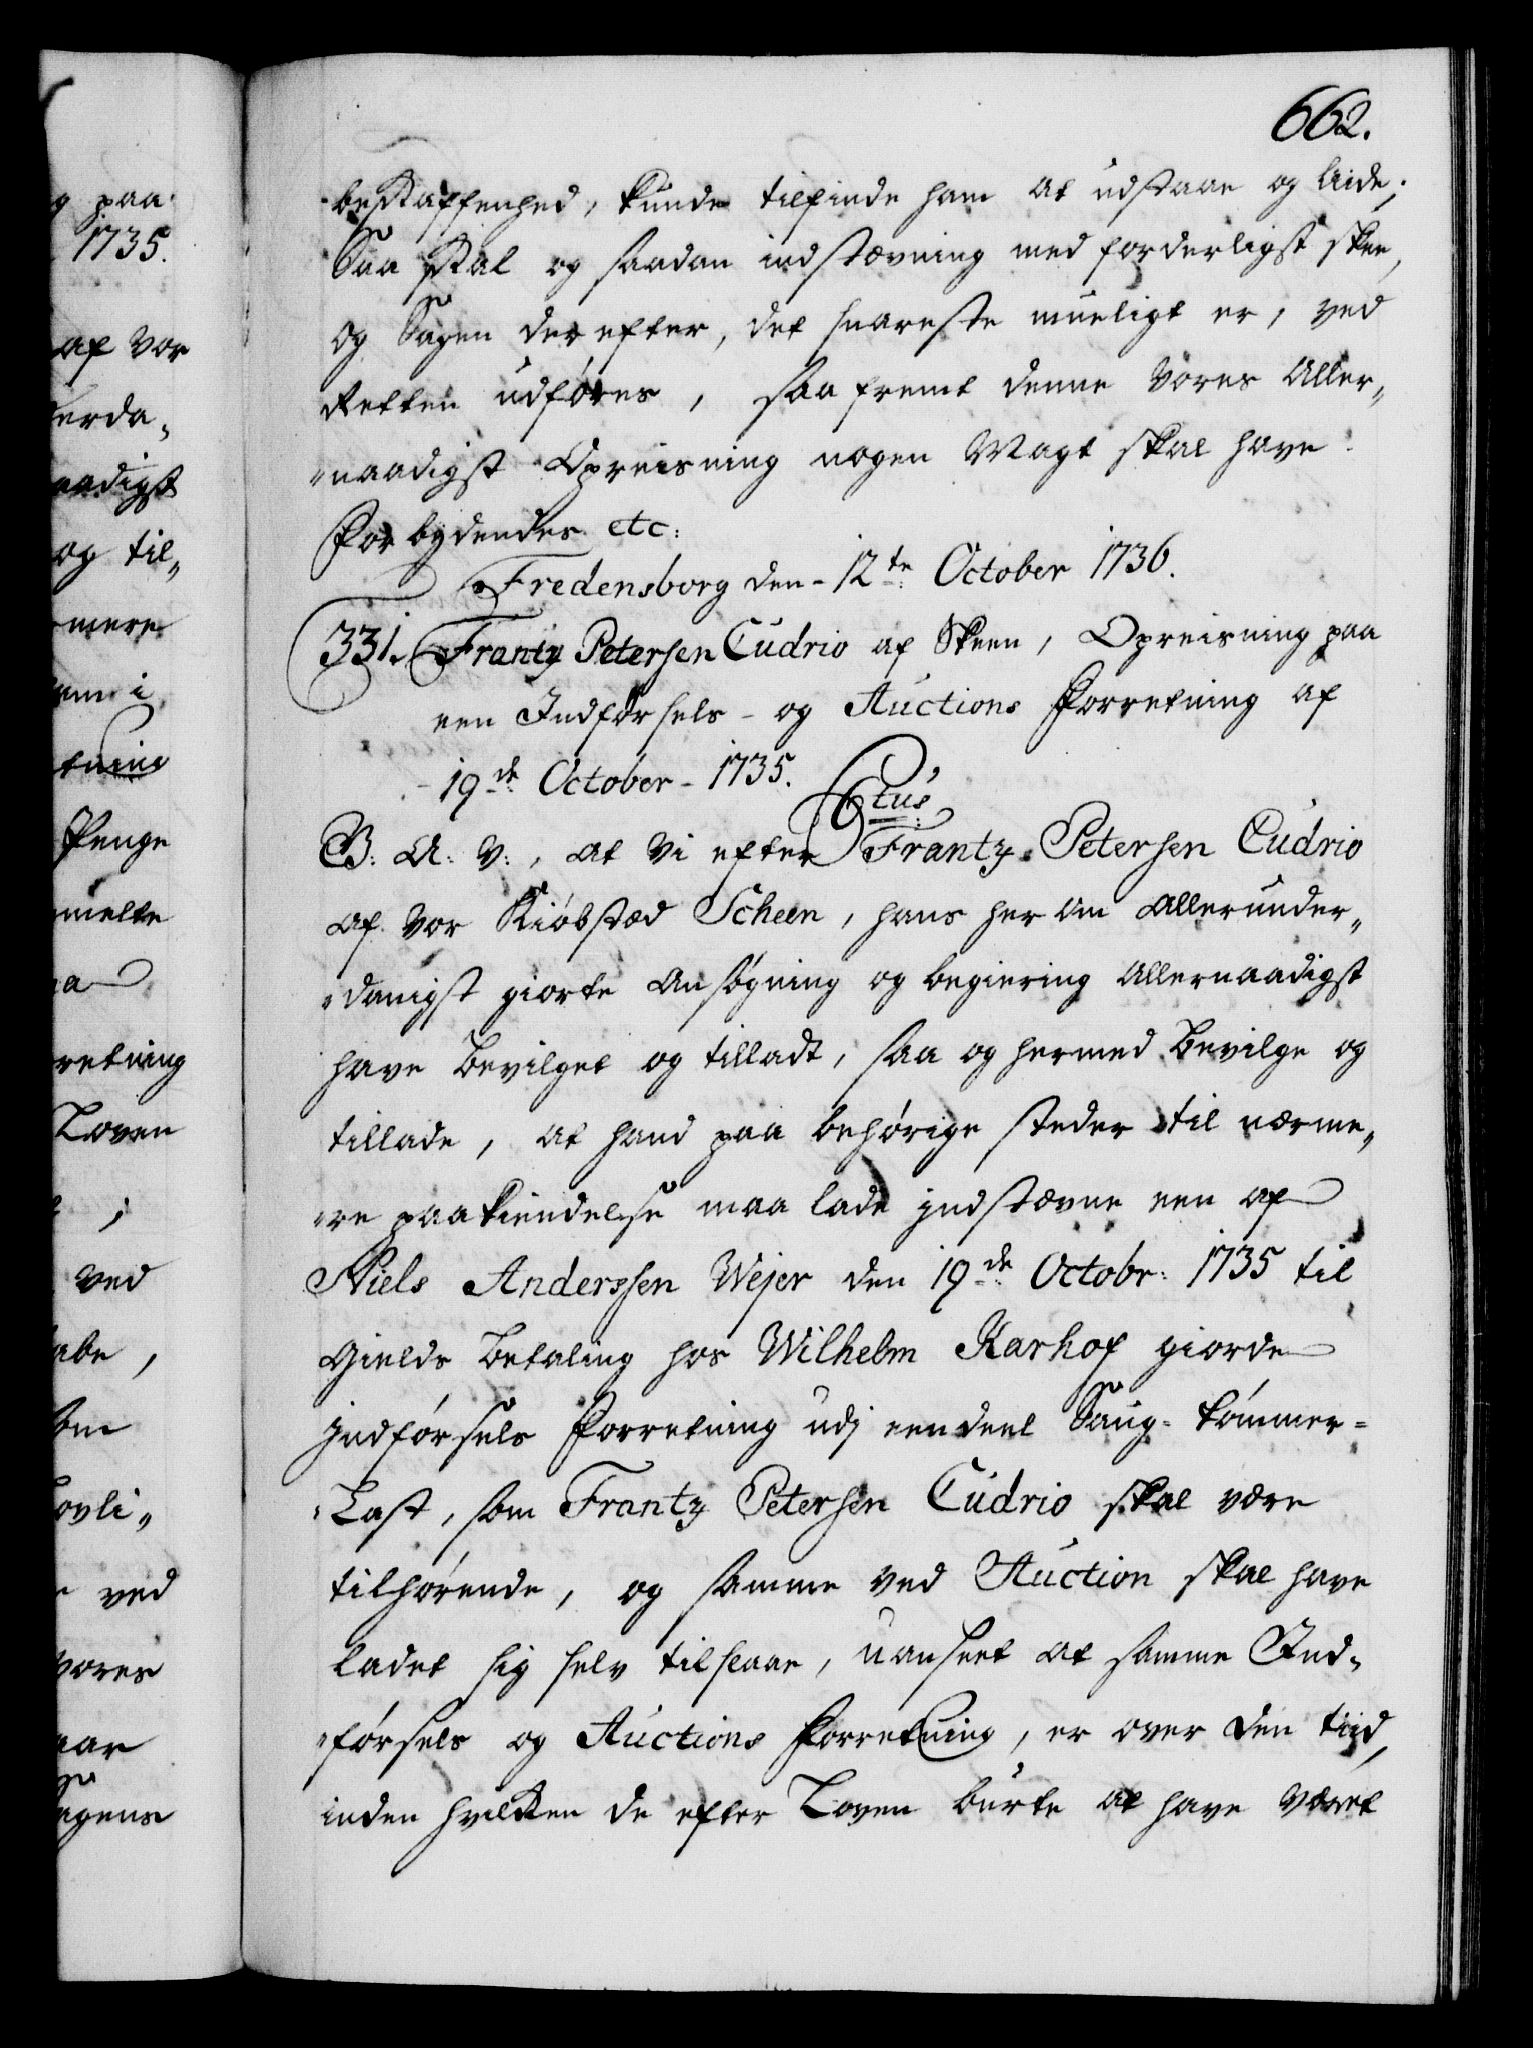 g paa
1735.
af vor
erda„
aadigst
og til„
mere
am i
tning
Penge
melte
a
retning
Loven
ved
abe,
om
ovli„
ved
vores
aar
agens
662.
beskaffenhed, kunde tilfinde ham at udstaae og lide;
Saa skal og saadan indstævning med forderligst skee,
og Sagen der efter, det snareste mueligt er, ved
Retten udføres, saa fremt denne vores Aller„
„naadigst Opreisning nogen Magt skal have.
Forbydendes etc:
Fredensborg den 12te October 1736.
331. Frantz Petersen Cudrio af Skeen, Opreisning paa
een Indførsels- og Auctions Forretning af
19de October 1735.
6tus
G: A: V:, at Vi efter Frantz Petersen Cudrio
af vor Kiöbstæd Scheen, hans her om allerunder„
„danigst giorte ansøgning og begiering allernaadigst
have bevilget og tilladt, saa og hermed bevilge og
tillade, at hand paa behørige steder til nærme„
„re paakiendelse maa lade indstævne een af
Niels Anderssen Wejer den 19de Octobr: 1735 til
Gields betaling hos Wilhelm Karhof giorde
indførsels Forretning udj een deel Saug-tømmer-
Last, som Frantz Petersen Cudrio skal være
tilhørende, og samme ved Auction skal have
ladet sig selv tilslaae, uanseet at samme Ind„
„førsels og Auctions Forretning, er over den tiid,
inden hvilken de efter Loven burte at have været